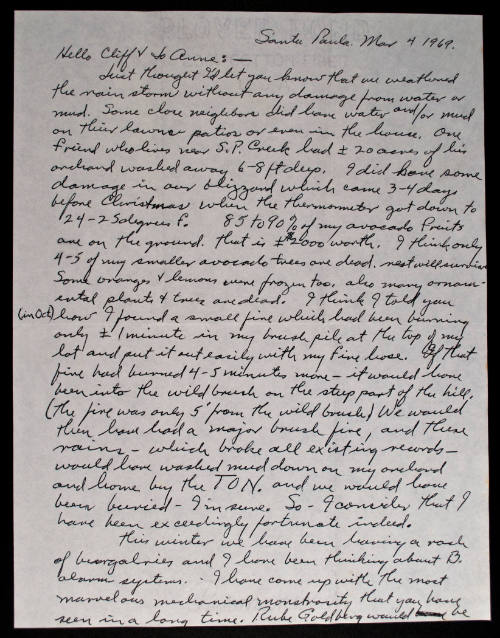 Santa Paula. Mar 4 1969.
Hello Cliff & Jo Anne:—
Just thought I'd let you know that we weathered
the rain storm without any damage from water or
mud. Some close neighbors did have water and/or mud
on their lawns patios or even in the house. One
friend who lives near S.P. Creek had ± 20 acres of his
orchard washed away 6-8 ft deep. I did have some
damage in our blizzard which came 3-4 days
before Christmas when the thermometer got down to
24-25 degrees F. 85 to 90% of my avocado fruits
are on the ground. that is ± $2000 worth. I think only
4-5 of my smaller avocado trees are dead. rest will survive
Some oranges & lemons were frozen too, also many ornam-
ental plants & trees are dead. I think I told you
(in Oct) how I found a small fire which had been burning
only ± 1 minute in my brush pile at the top of my
lot and put it out easily with my fire hose. If that
fire had burned 4-5 minutes more - it would have
been into the wild brush on the steep part of the hill.
(the fire was only 5' from the wild brush) We would
then have had a major brush fire, and these
rains - which broke all existing records -
would have washed mud down on my orchard
and home by the TON. and we would have
been buried - I'm sure. So - I consider that I
have been exceedingly fortunate indeed.
This winter we have been having a rash
of burgalries and I have been thinking about B.
alarm systems. - I have come up with the most
marvelous mechanical monstrosity that you have
seen in a long time. Rube Goldberg would be